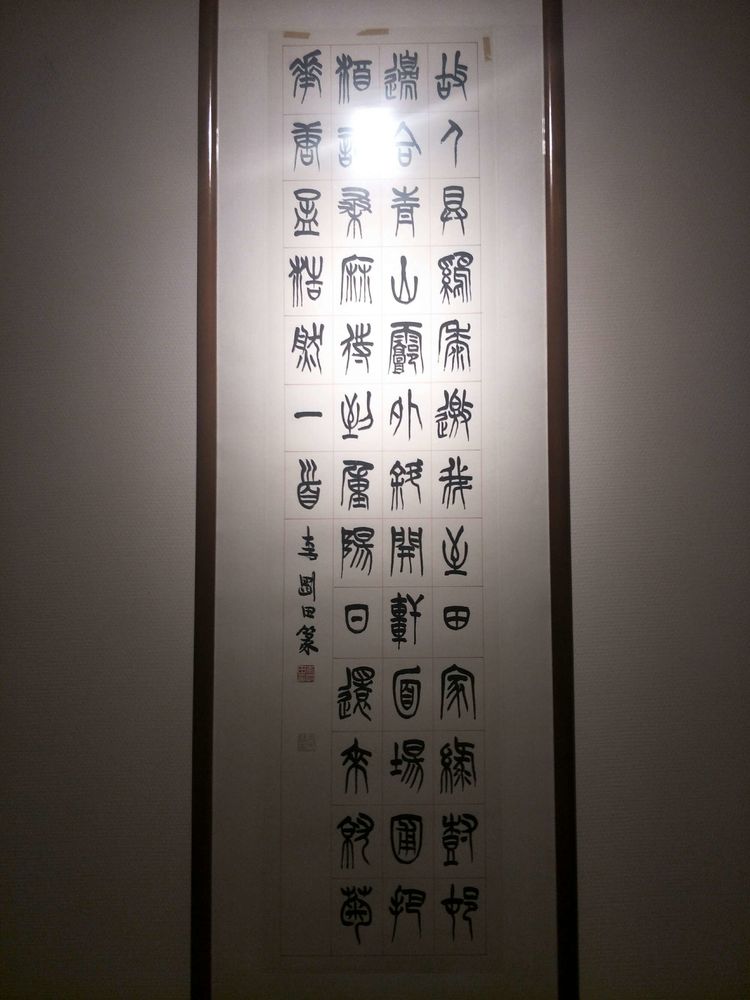 故人具雞黍邀我至田家綠樹村
邊合青山郭外斜開軒面場圃把
酒話桑麻待到重陽日還來就菊
華唐孟浩然一首
國田篆